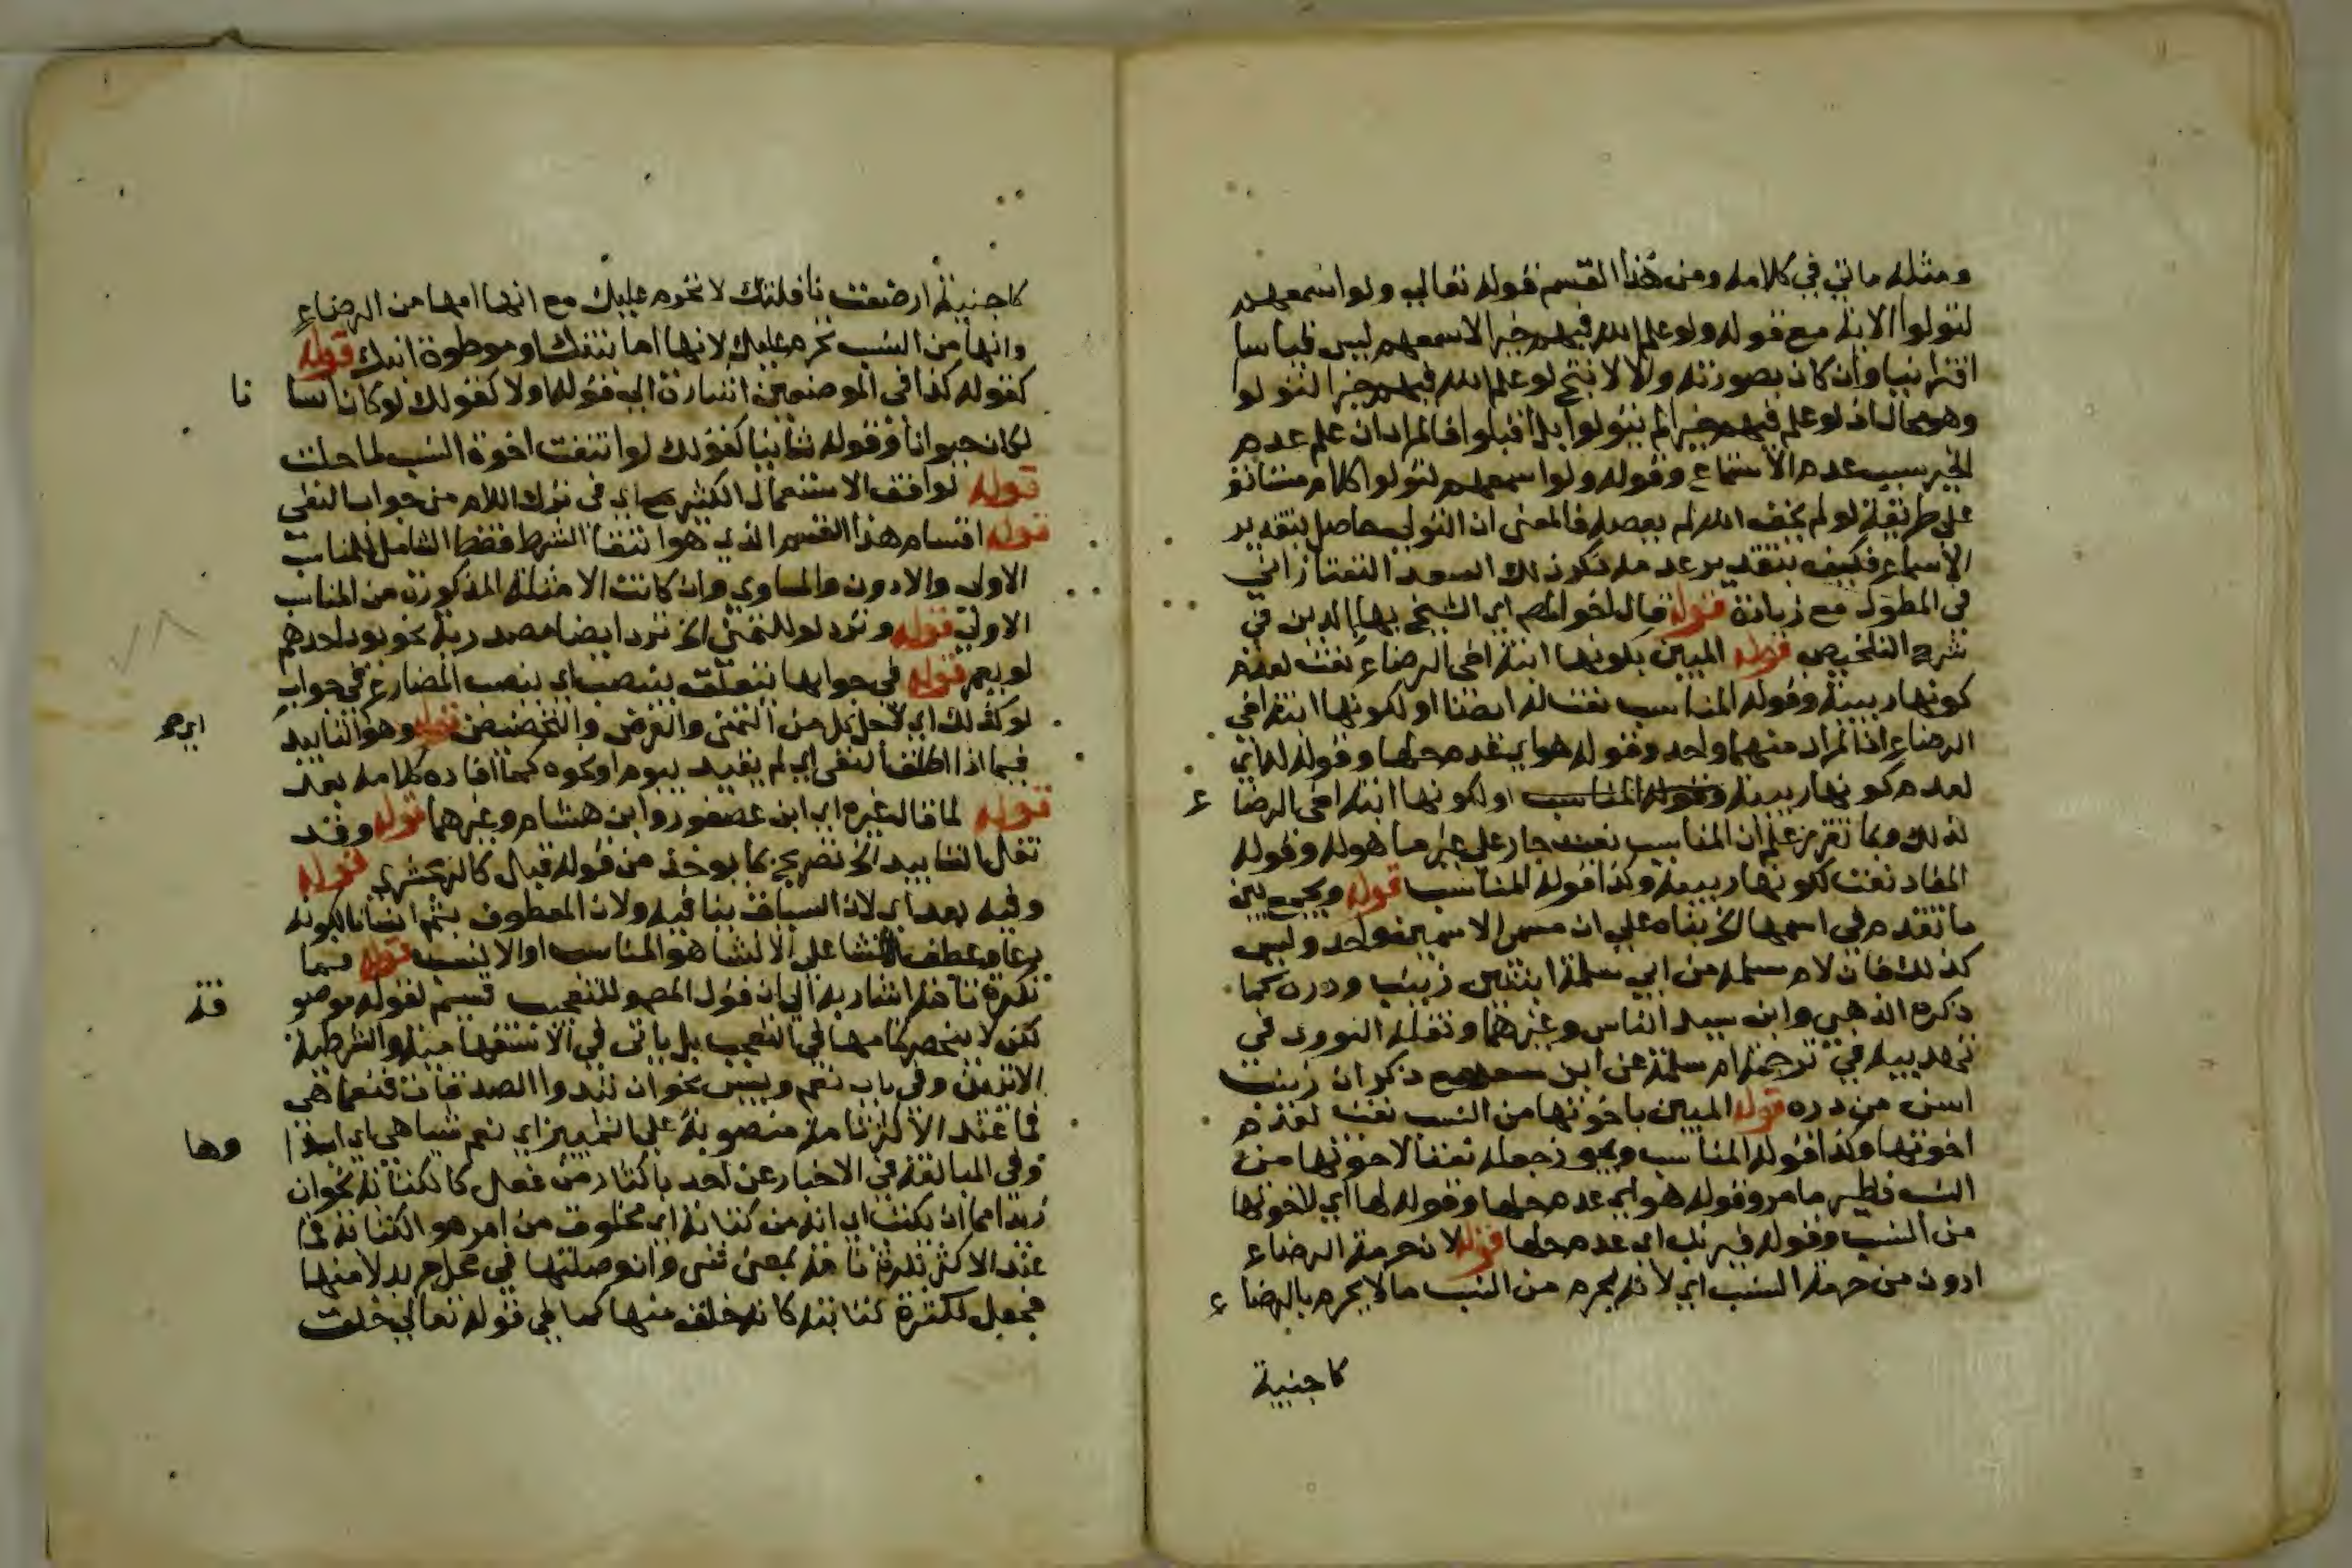 ومثله ما تي في كلامه ومن هذا القسم قوله تعالى ولو اسمعهم
لتولوا الاية مع قوله ولو علم الله فيهم خيرا لاسمعهم ليس قياسا
اقترانيا وان كان بصورته والا لا نتج لو علم الله فيهم خيرا لتولوا
وهو محال اذ لو علم فيهم خيرا لم يتولوا بل اقبلوا فالمراد ان علم عدم
الخير سبب عدم الاسماع وقوله ولو اسمعهم لتولوا كلام مستانف
على طريقة لو لم يخف الله لم يعصه فالمعنى ان التولي حاصل بتقدير
الاسماع فكيف بتقدير عدمه ذكر ذلك السعد التفتازاني
في المطول مع زيادة قوله قال اخو المص اي الشيخ بهاالدين في
شرح التلخيص قوله المبين بكونها ابنة اخي الرضاع نعت لعدم
كونها ربيبة وقوله المناسب نعت له ايضا او لكونها ابنة اخي
الرضاع اذ المراد منهما واحد وقوله هو اي عدم حلها وقوله له اي
لعدم كونها ربيبة وقوله المناسب او لكونها ابنة اخي الرضاع
لذلك وبما تقرر علم ان المناسب نعت جار على غير ما هو له وقوله
المفاد نعت لكونها ربيبة وكذا قوله المناسب قوله ويجمع بين
ما تقدم في اسمها الخ بناه على ان مسمى الاسمين واحد وليس
كذلك فان لام سلمة من ابي سلمة ابنتين زينب ودره كما
ذكره الذهبي وابن سيد الناس وغيرهما ونقله النووي في
تهذيبه في ترجمة ام سلمة عن ابن سعد مع ذكر ان زينب
اسن من دره قوله المبين باخوتها من النسب نعت لعدم
اخوتها وكذا قوله المناسب ويجوز جعله نعتا لاخوتها من
النسب نظير ما مر وقوله هو اي عدم حلها وقوله لها اي لاخوتها
من النسب وقوله فيرتب اي عدم حلها قوله لان حرمة الرضاع
ادون من حرمة النسب اي لانه يحرم من النسب ما لا يحرم بالرضاع
كاجنبية
كاجنبية ارضعت نافلتك لا تحرم عليك مع انها امها من الرضاع
وانها من النسب تحرم عليك لانها اما بنتك او موطوة ابنك قوله
كقوله كذا في الموضعين اشارة الى قوله اولا كقولك لو كان انسانا
لكان حيوانا وقوله ثانيا كقولك لو انتفت اخوة النسب لما حلت
قوله لوافق الاستعمال الكثير مع اي في ترك اللام من جواب النفي
قوله اقسام هذا القسم الذي هو انتفا الشرط فقط الشامل للمناسب
الاولى والادون والمساوي وان كانت الامثلة المذكورة من المناسب
الاولى قوله وترد لو للتمني الخ ترد ايضا مصدرية نحو يود احدهم
لو يعمر قوله في جوابها يتعلق بينصب اي ينصب المضارع في جواب
لو كذلك اي لاجل كل من التمني والعرض والتحضيض قوله وهو التابيد
ايرمو
فيما اذا اطلق النفي اي لم يقيد بيوم او نحوه كما افاده كلامه بعد
قوله لما قاله غيره اي ابن عصفور وابن هشام وغيرهما قوله وقد
نقل التابيد الخ تصريح بما يوخذ من قوله قبال كالزمخشري قوله
وفيه بعد اي لان السياق ينافيه ولان المعطوف بثم انشا لكونه
دعا وعطف الانشا على الانشا هو المناسب او الانسب قوله فيما
نكرة تامة اشار به الى ان قول المص وللتعجب قسيم لقوله موصوفة
لكن لا ينحصر تمامها في التعجب بل ياتي في الاستفهامية والشرطية
الاتيتين وفي باب نعم وبيس نحو ان تبدوا الصدقات فنعما هي
فما عند الاكثر تامة منصوبة على التمييز اي نعم شيا هي اي ابداوها
وفي المبالغة في الاخبار عن احد باكثار من فعل كالكتابة نحو ان
زيدا مما ان يكتب اي انه من كتابة اي مخلوق من امر هو الكتابة فما
عند الاكثر نكرة تامة بمعنى شي وان وصلتها في محل جر بدلا منها
فجعل لكثرة كتابته كانه خلق منها كما في قوله تعالى خلق